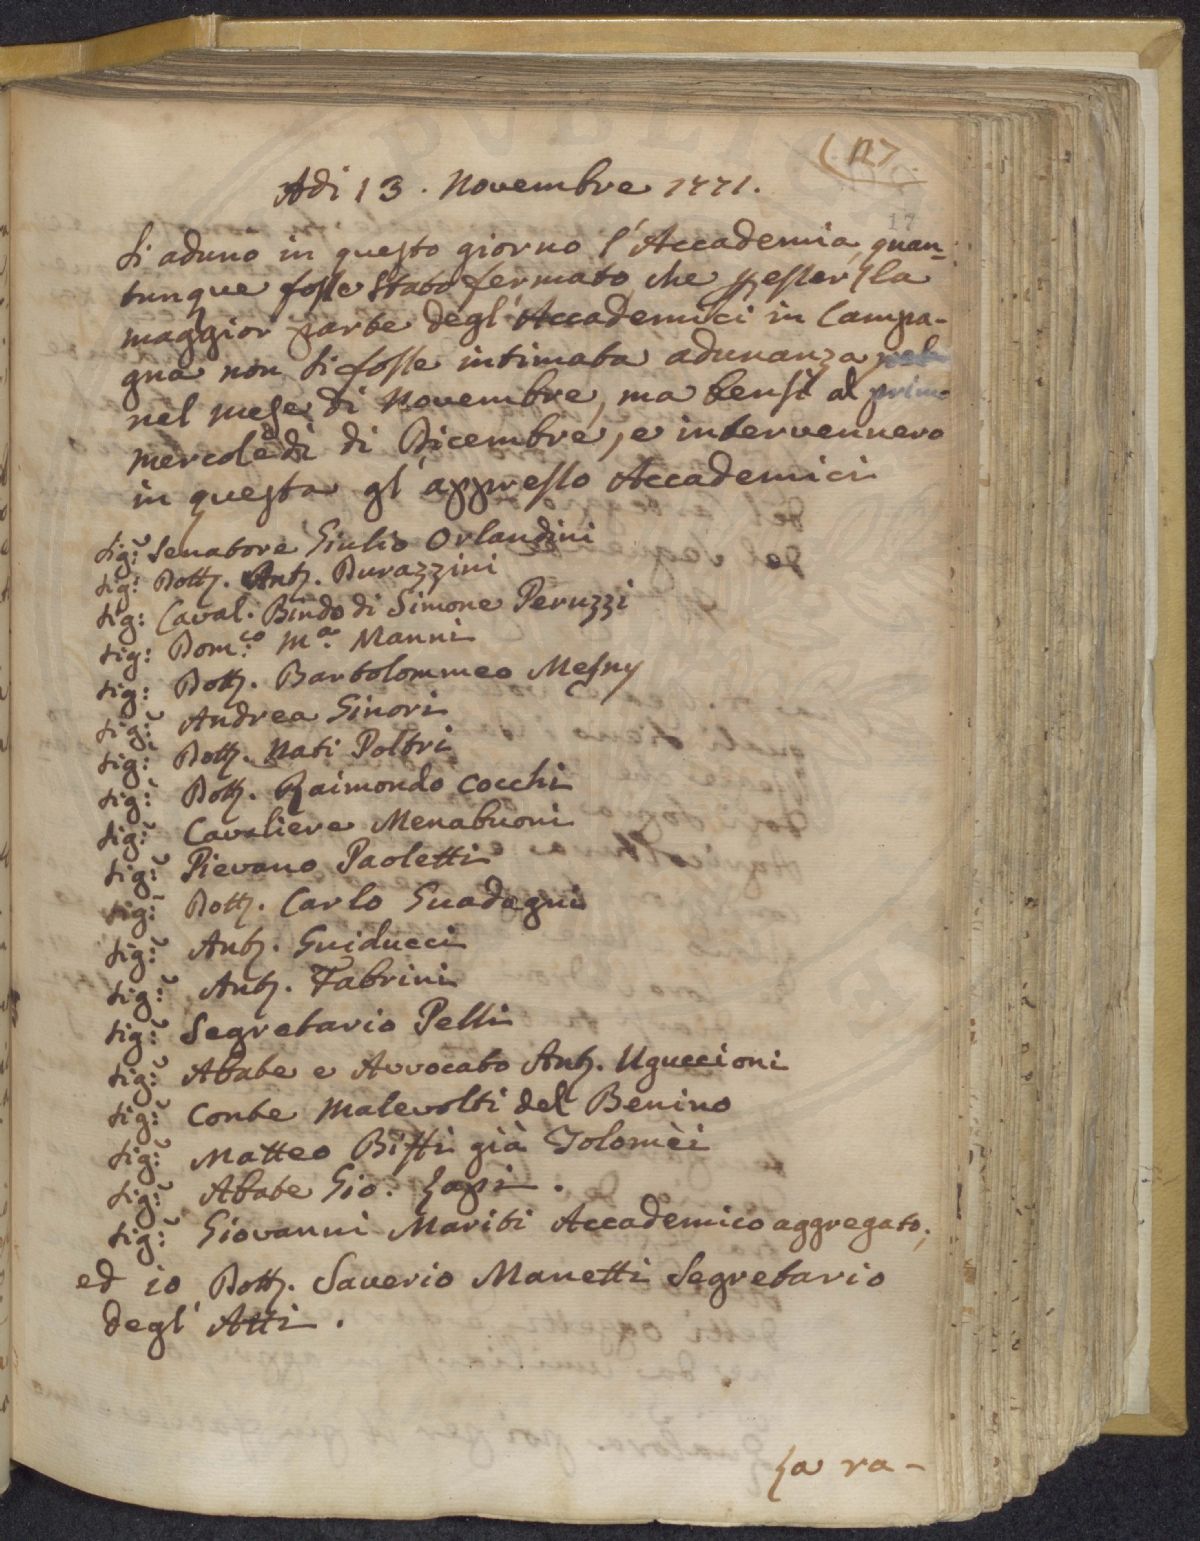 (127
17
Adi 13. Novembre 1771.
Si adunò in questo giorno l'Accademia, quan-
tunque fosse stato fermato che p esser la
maggior parte degl'Accademici in Campa-
gna non si fosse intimata adunanza
nel mese di Novembre, ma bensì al primo
mercoledì di Dicembre, e intervennero
in questa gl'appresso Accademici
Sig:r Senatore Giulio Orlandini
Sig: Dott. Ant. Durazzini
Sig: Caval. Bindo di Simone Peruzzi
Sig: Dom:co M:a Manni
Sig: Dott. Bartolommeo Mesny
Sig:r Andrea Ginori
Sig: Dott. Nati Poltri
Sig:r Dott. Raimondo Cocchi
Sig:r Cavaliere Menabuoni
Sig:r Pievano Paoletti
Sig:r Dott. Carlo Guadagni
Sig:r Ant. Guiducci
Sig:r Ant. Fabrini
Sig:r Segretario Pelli
Sig:r Abate e Avvocato Ant. Uguccioni
Sig:r Conte Malevolti del Benino
Sig:r Matteo Biffi già Tolomèi
Sig:r Abate Gio: Lapi.
Sig:r Giovanni Mariti Accademico aggregato;
ed io Dott. Saverio Manetti Segretario
degl'Atti.
La ra-